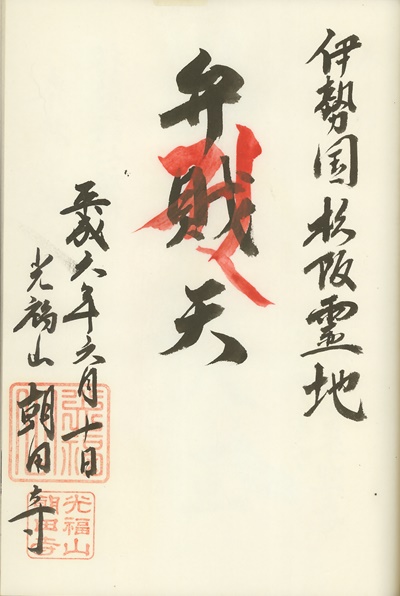 伊勢国松阪霊地
弁財天
平成六年六月十日
光福山 朝田寺
光福山
朝田寺